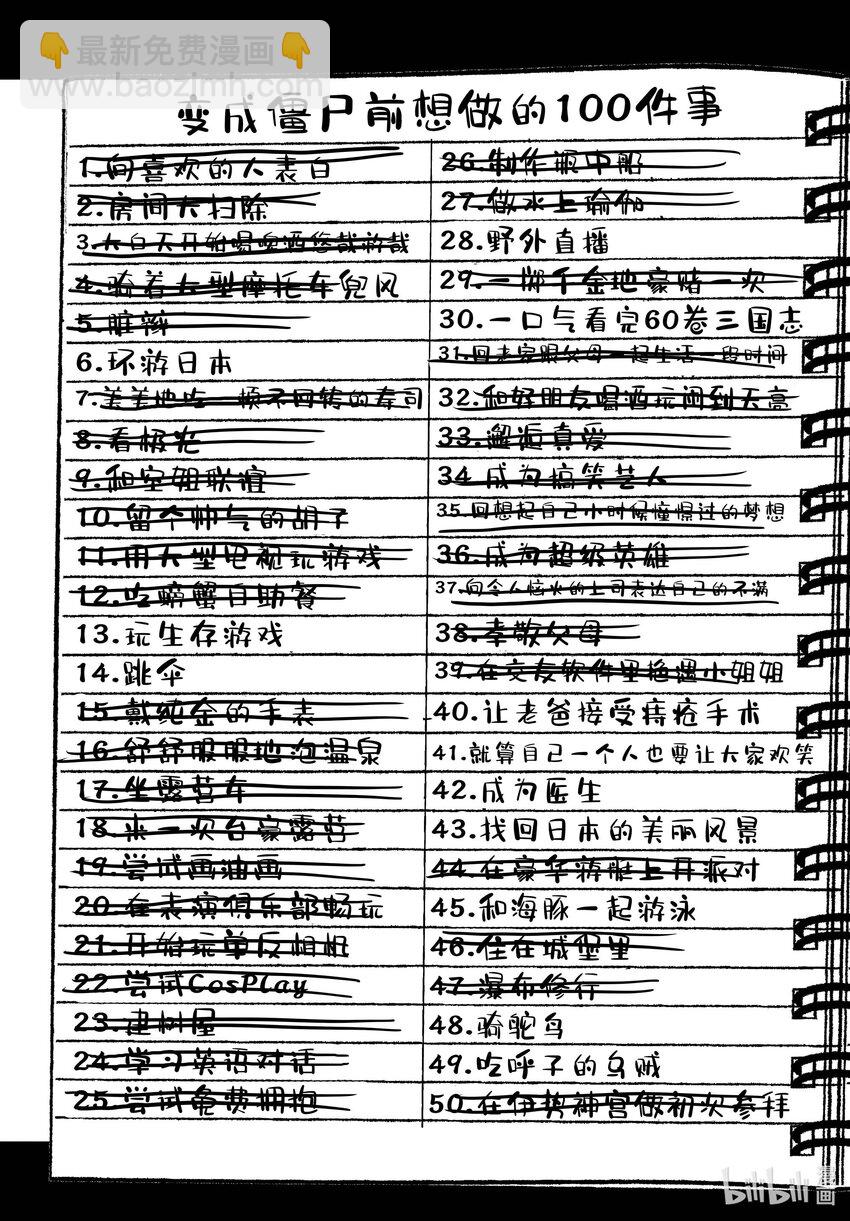 最新免费漫画
www.baozimh.com
变成僵尸前想做的100件事
1.向喜欢的人表白
2.房间大扫除
3.大白天开始喝啤酒悠哉游哉
4.骑着大型摩托车兜风
5.脏辫
6.环游日本
7.美美地吃一顿不回转的寿司
8.看极光
9.和空姐联谊
10.留个帅气的胡子
11.用大型电视玩游戏
12.吃螃蟹自助餐
13.玩生存游戏
14.跳伞
15.戴纯金的手表
16.舒舒服服地泡温泉
17.坐露营车
18.来一次台豪露营
19.尝试画油画
20.在表演俱乐部畅玩
21.开始玩单反相机
22.尝试CosPlay
23.建树屋
24.学习英语对话
25.尝试免费拥抱
26.制作瓶中船
27.做水上瑜伽
28.野外直播
29.一掷千金地豪赌一次
30.一口气看完60卷三国志
31.回老家跟父母一起生活一段时间
32.和好朋友喝酒玩闹到天亮
33.邂逅真爱
34.成为搞笑艺人
35.回想起自己小时候憧憬过的梦想
36.成为超级英雄
37.向令人恼火的上司表达自己的不满
38.孝敬父母
39.在交友软件里偶遇小姐姐
40.让老爸接受痔疮手术
41.就算自己一个人也要让大家欢笑
42.成为医生
43.找回日本的美丽风景
44.在豪华游艇上开派对
45.和海豚一起游泳
46.住在城堡里
47.瀑布修行
48.骑鸵鸟
49.吃呼子的乌贼
50.在伊势神宫做初次参拜
bilibili 漫画